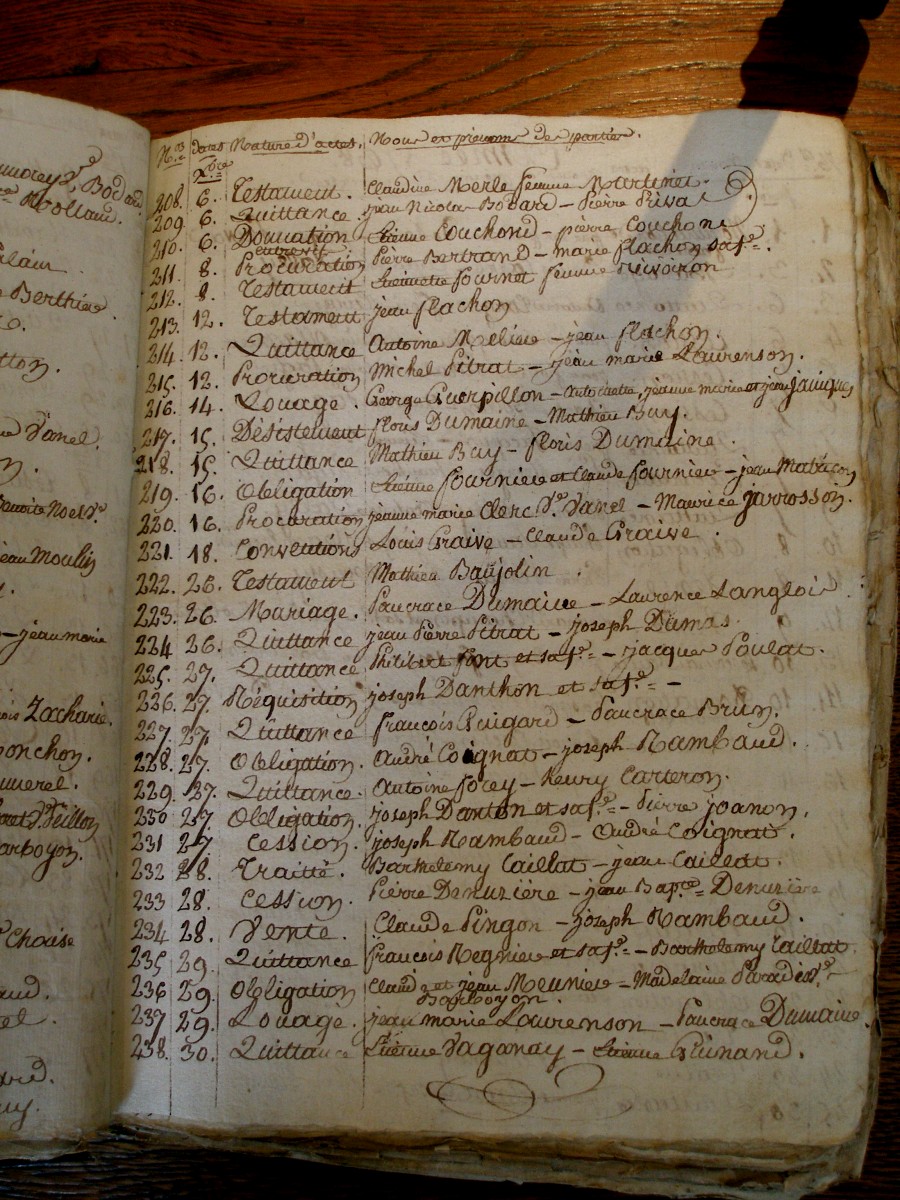 Nos dates Nature d'actes. Noms et prénoms des parties.
Xbre
208. 6. Testament. Claudine Merle femme Martinet.
209. 6. Quittance. jean Nicolas Bodard – Pierre Privas
210. 6. Donnation Etienne Couchond – pierre Couchond
entrevifs
211. 8. Procuration Pierre Bertrand – marie flachon sa fe.
212. 8. Testament Etiennette fournet femme
213. 12. Testament jean flachon
214. 12. Quittance Antoine Melieu – jean flachon.
215. 12. Procuration Michel Pitrat – jean marie Laurenson.
216. 14. Louage. George Guerpillon – Antoinette, jeanne marie et jean jauques
217. 15. Désistement floris Dumaine – Mathieu Buy.
218. 15. Quittance Mathieu Buy – floris Dumaine.
219. 16. Obligation Etienne fournier et Claude fournier – jean Matricon
220. 16. Procuration jeanne marie Clerc Ve. Vanel – Maurice jarrosson.
221. 18. Conventations Louis Graive – Claude Graive.
222. 26. Testament Mathieu Baujolin.
223. 26. Mariage. Pancrace Dumaine – Laurence Langlois
224 26. Quittance jean Pierre Pitrat – joseph Dumas.
225. 27. Quittance Philibert font et sa fe. – jacques Poulat.
226. 27. Réquisition joseph Danthon et sa fe. –
227. 27. Quittance francois Guigard – Pancrace Brun.
228. 27. Obligation. André Coignat – joseph Rambaud.
229. 27. Quittance. Antoine forey – henry Carteron.
230 27. Obligation. joseph Danton et sa fe. – Pierre joanon.
231 27 Cession. joseph Rambaud – André Coignat.
232 28. Traitté. Barthelemy Caillat – jean Caillat.
233 28. Cession. Pierre Denuzière – jean Bapte. Denuzière
234 28. Vente. Claude Pingon – joseph Rambaud.
235 29. Quittance francois Regnier et sa fe. – Barthelemy Caillat
236 29. Obligation Claude et jean Meunier – Madelaine
Barboyon.
237 29. Louage. jean marie Laurenson – Pancrace Dumaine.
238. 30. Quittance Etienne Vaganay – Etienne Guinand.
Berthier
Vanel.
jean Moulin
– jean marie
Zacharie.
Chaise